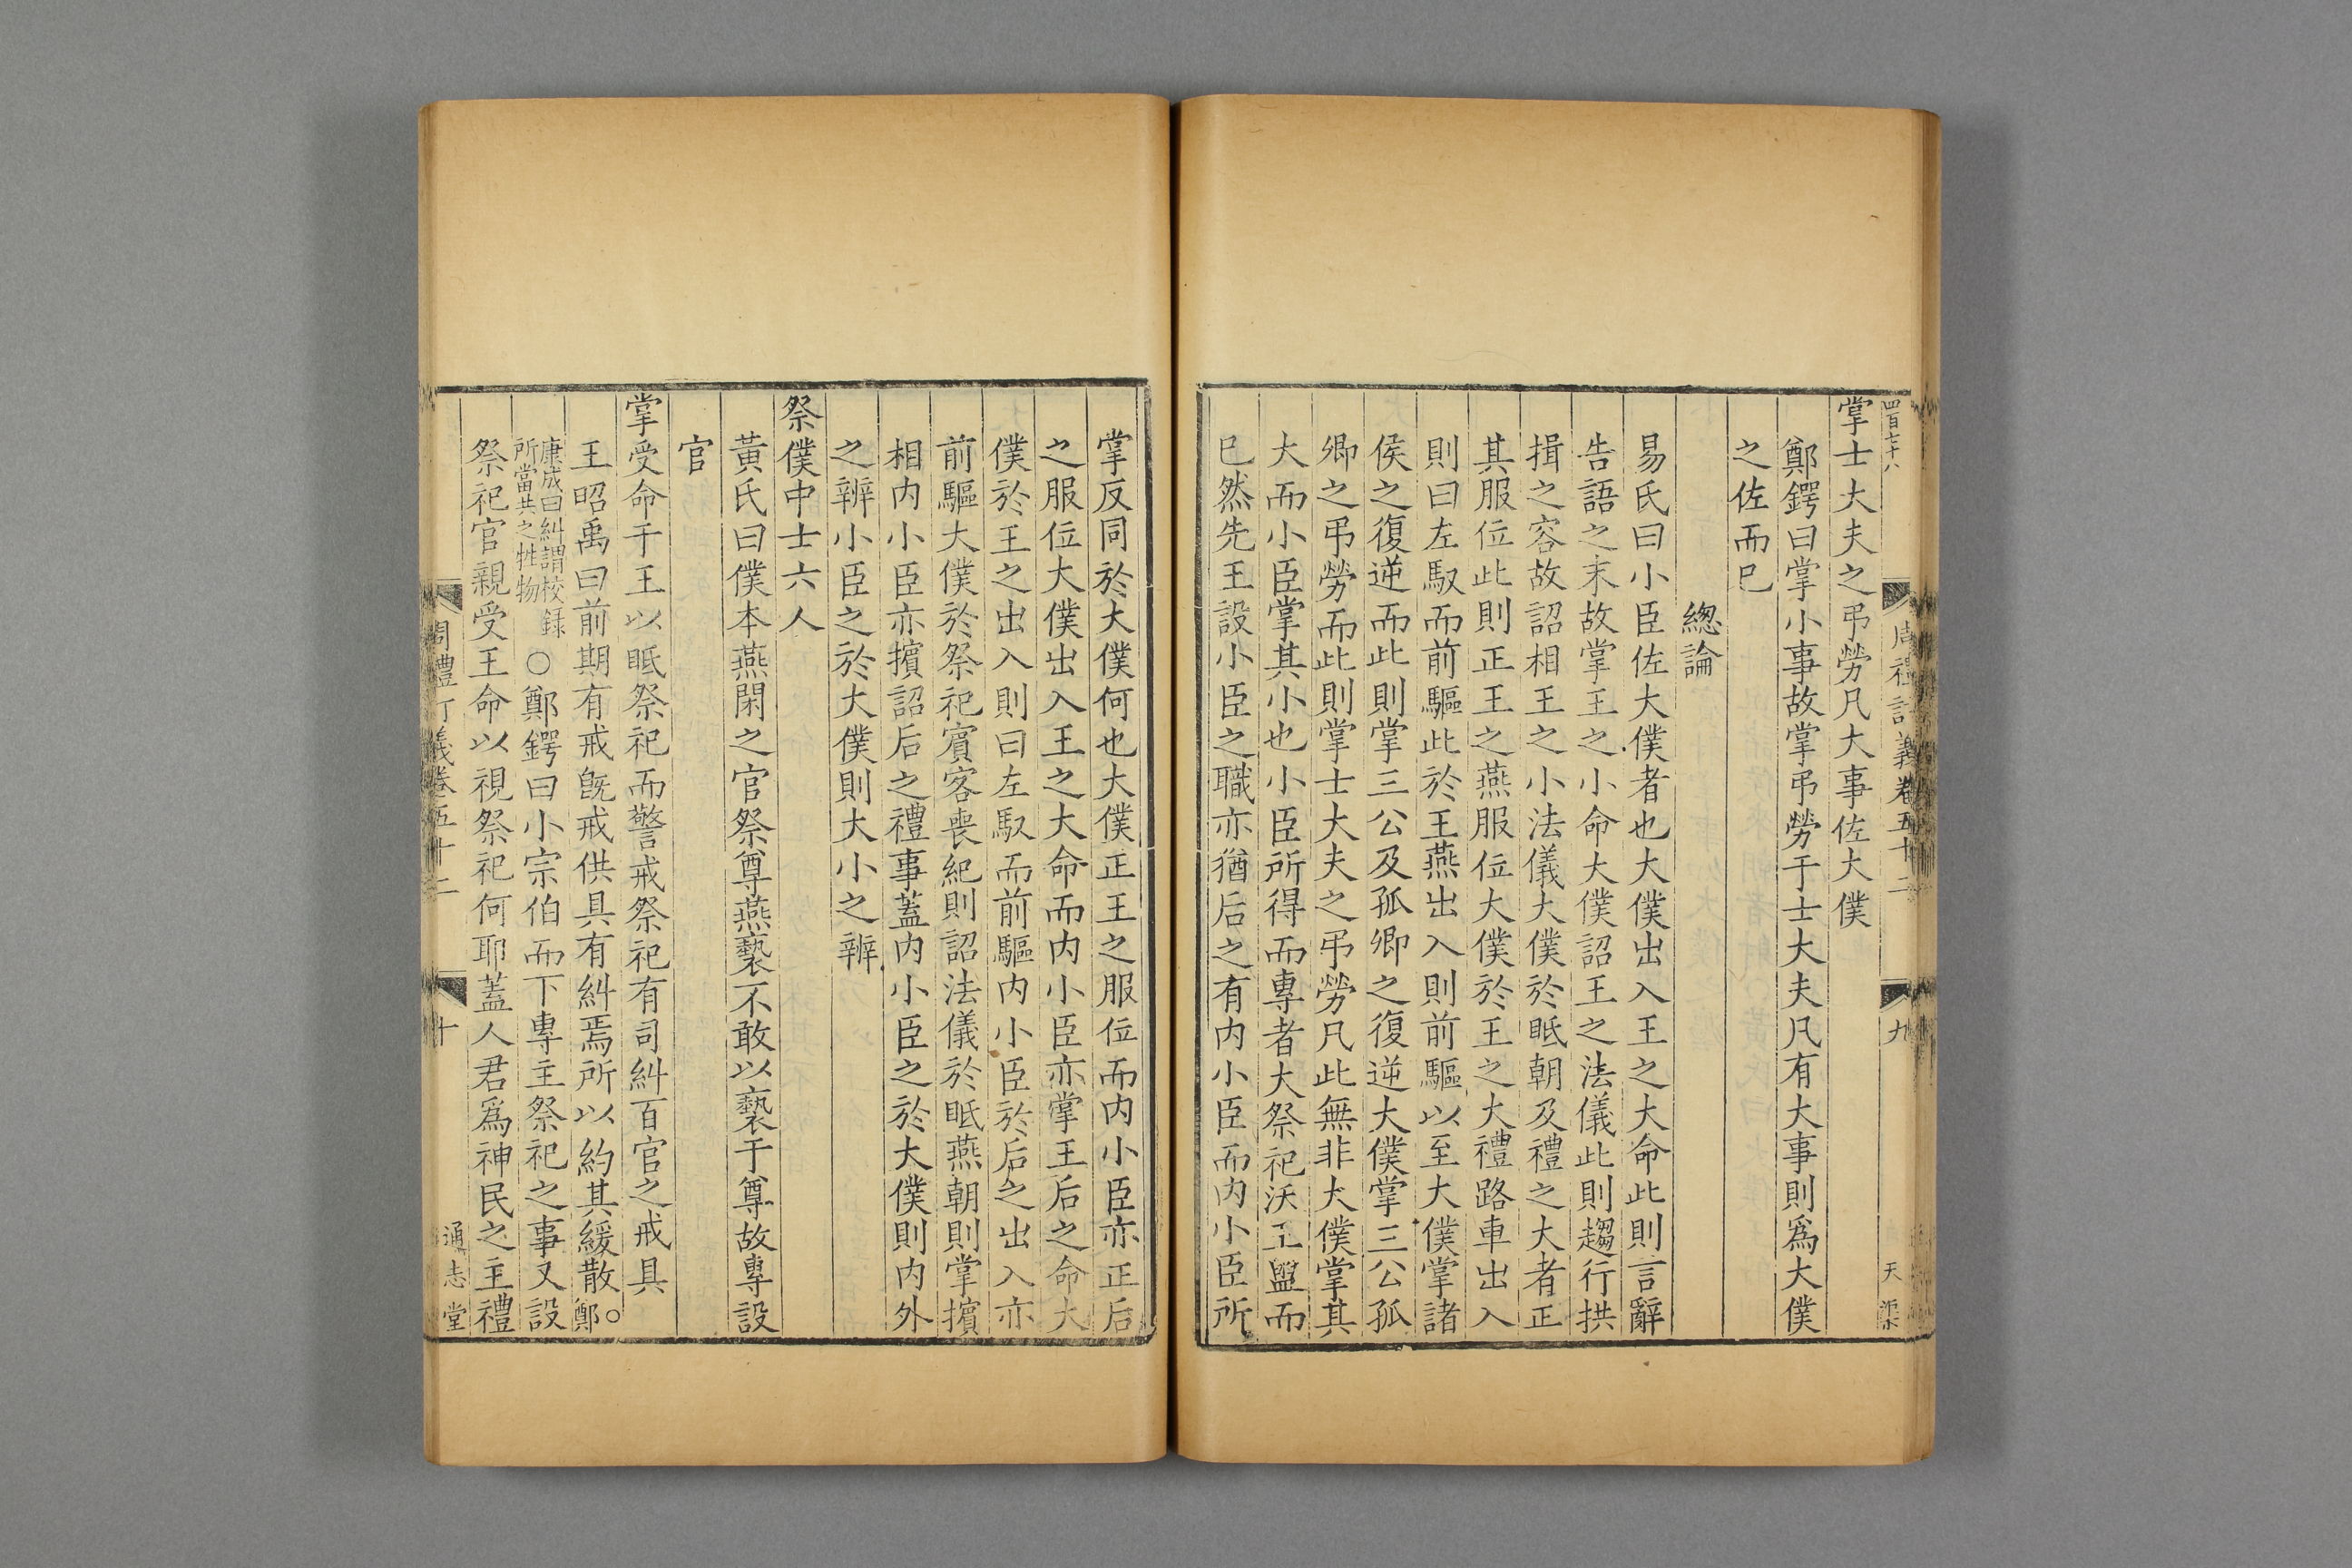 四百七十八
周禮訂義卷五十二
九
天渠
掌士大夫之弔勞凡大事佐大僕
鄭鍔曰掌小事故掌弔勞于士大夫凡有大事則爲大僕
之佐而已
總論
易氏曰小臣佐大僕者也大僕出入王之大命此則言辭
告語之末故掌王之小命大僕詔王之法儀此則趨行拱
揖之容故詔相王之小法儀大僕於眡朝及禮之大者正
其服位此則正王之燕服位大僕於王之大禮路車出入
則曰左馭而前驅此於王燕出入則前驅以至大僕掌諸
侯之復逆而此則掌三公及孤卿之復逆大僕掌三公孤
卿之弔勞而此則掌士大夫之弔勞凡此無非大僕掌其
大而小臣掌其小也小臣所得而專者大祭祀沃王盥而
已然先王設小臣之職亦猶后之有内小臣而内小臣所
掌反同於大僕何也大僕正王之服位而内小臣亦正后
之服位大僕出入王之大命而内小臣亦掌王后之命大
僕於王之出入則曰左馭而前驅内小臣於后之出入亦
前驅大僕於祭祀賓客喪紀則詔法儀於眡燕朝則掌擯
相内小臣亦擯詔后之禮事蓋内小臣之於大僕則内外
之辨小臣之於大僕則大小之辨
祭僕中士六人
黃氏曰僕本燕閑之官祭尊燕褻不敢以褻干尊故專設
官
掌受命于王以眡祭祀而警戒祭祀有司糾百官之戒具
王昭禹曰前期有戒旣戒供具有糾焉所以約其緩散○鄭
康成曰糾謂校錄
所當共之牲物
○鄭鍔曰小宗伯而下專主祭祀之事又設
祭祀官親受王命以視祭祀何耶蓋人君爲神民之主禮
周禮訂義卷五十二
十
通志堂